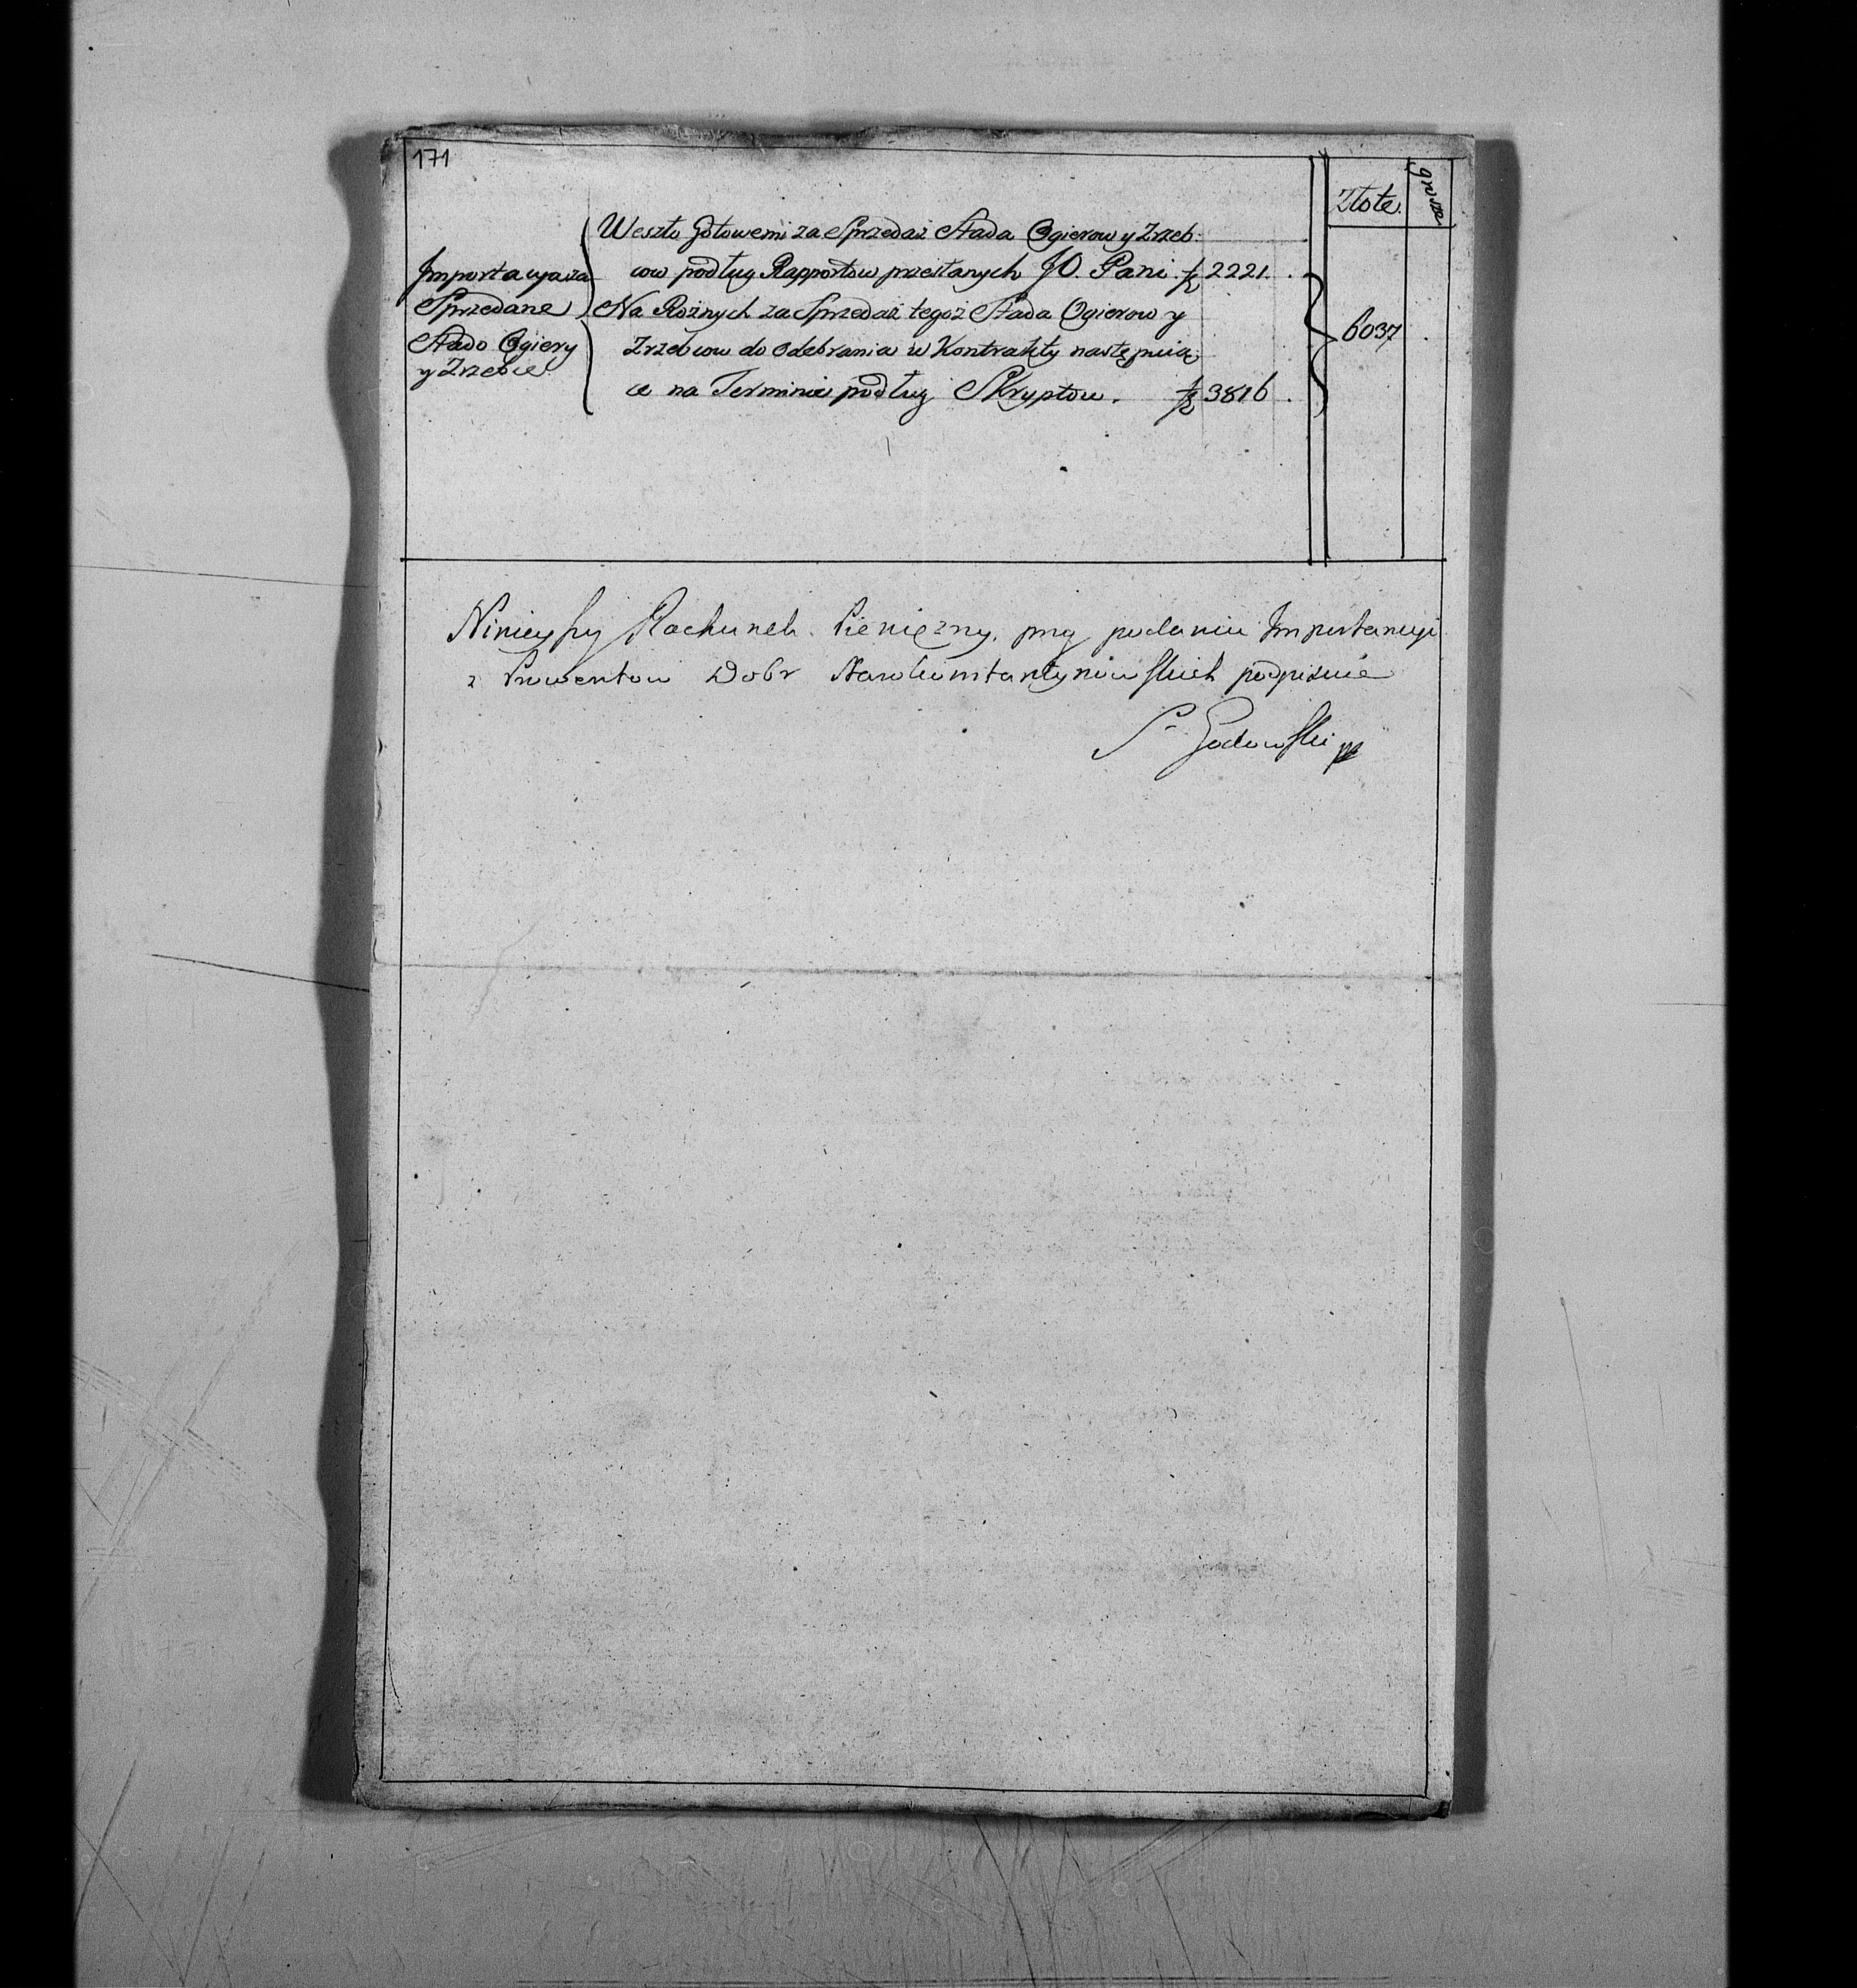 171
Złote. grosze
Importacya za
Sprzedane
Stado Ogiery
y Zrzebce
Weszło Gotowemi za Sprzedaż Stada Ogierow y Zrzeb:
cow podług Rapportow przesłanych JO. Pani. fz 2221.
Na Rożnych za Sprzedaż tegoż Stada Ogierow y
Zrzebcow do Odebrania w Kontrakty następuią:
ce na Terminie podług Skryptow. fz 3816.
6037
Ninieyszy Rachunek Pieniężny, przy podaniu Importancyi
z Prowentow Dobr Starokonstantynowskich podpisuie
S Godowski